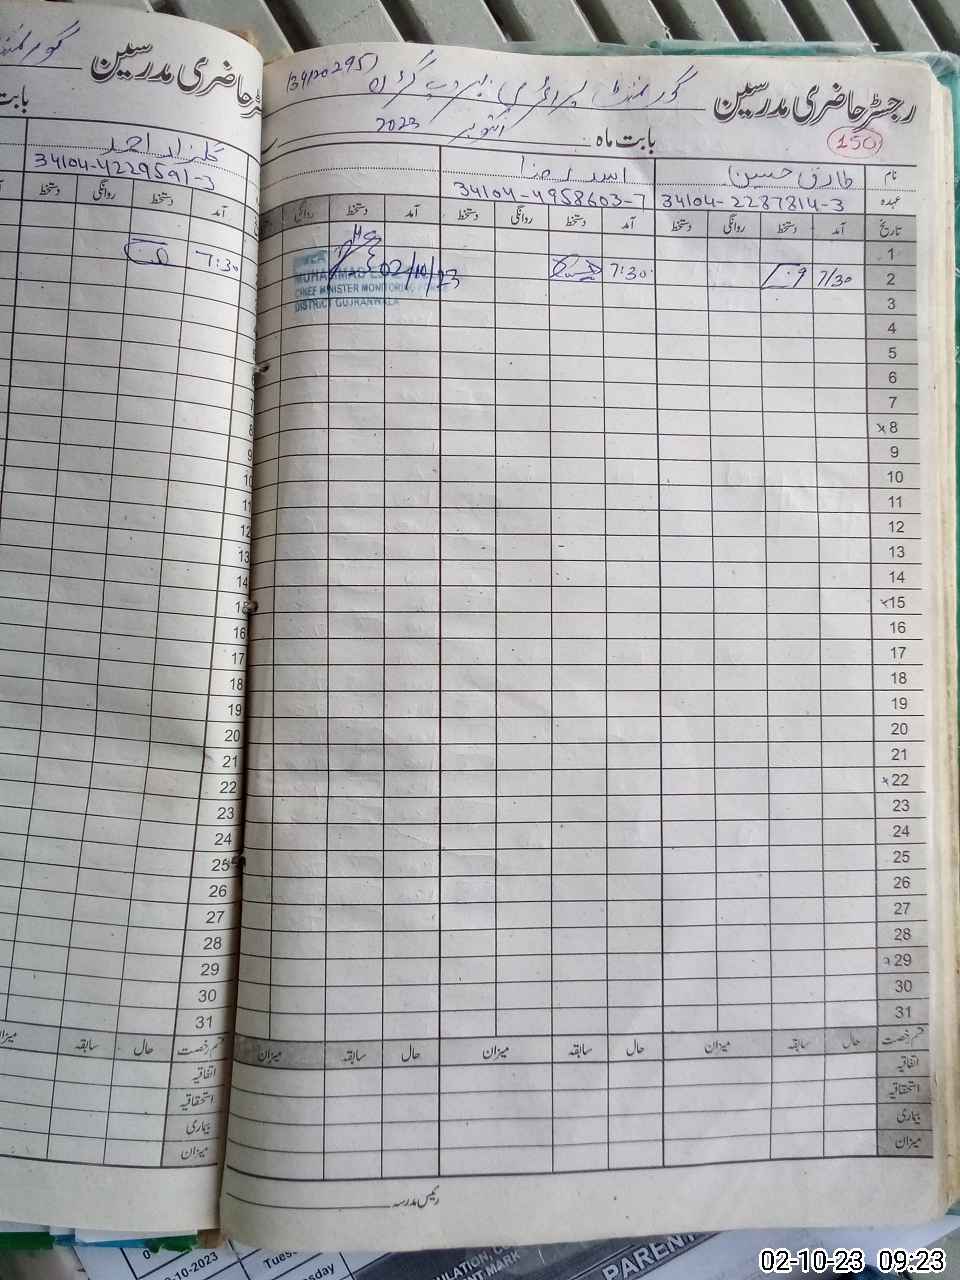 رجسٹر حاضری مدرسین گورنمنٹ پرائمری
(34120295)
150
بابت ماہ اکتوبر 2023
نام طارق حسین اسد رضا
عہدہ 34104-2287814-3 34104-4958603-7
تاریخ آمد دستخط روانگی دستخط آمد دستخط روانگی دستخط آمد دستخط روانگی
1
2 7/30 7:30
02/10/23
MUHAMMAD
CHIEF MINISTER MONITORING
DISTRICT GUJRANWALA
3
4
5
6
7
8
9
10
11
12
13
14
15
16
17
18
19
20
21
22
23
24
25
26
27
28
29
30
31
قسم رخصت حال سابقہ میزان حال سابقہ میزان حال سابقہ میزان
اتفاقیہ
استحقاقیہ
بیماری
میزان
رئیس مدرسہ
رجسٹر حاضری مدرسین
بابت
گلزار احمد
34104-4229591-3
آمد دستخط روانگی دستخط
7:30
8
9
10
11
12
13
14
15
16
17
18
19
20
21
22
23
24
25
26
27
28
29
30
31
قسم رخصت حال سابقہ میزان
اتفاقیہ
استحقاقیہ
بیماری
میزان
-10-2023
Tues
sday
MARK
PAREN
02-10-23 09:23